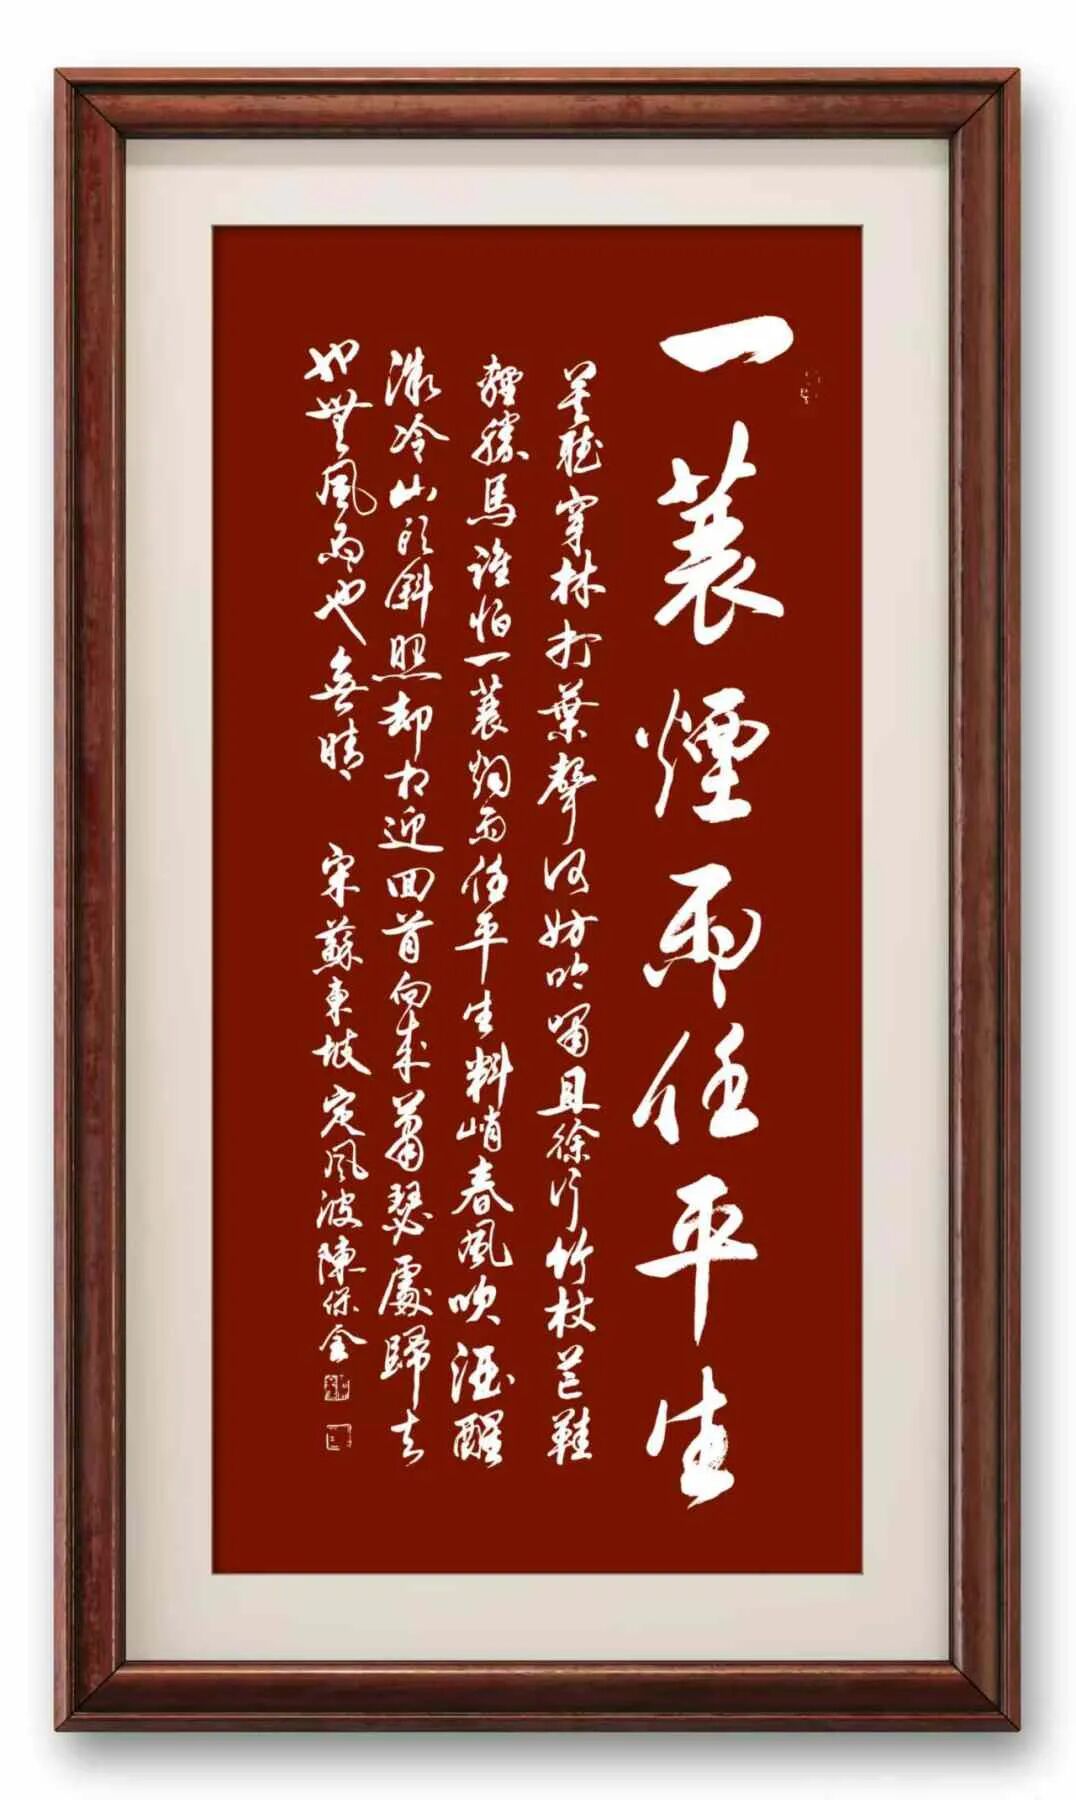 一蓑煙雨任平生
莫聽穿林打葉聲何妨吟嘯且徐行竹杖芒鞋
輕勝馬誰怕一蓑烟雨任平生料峭春風吹酒醒
微冷山頭斜照却相迎回首向來蕭瑟處歸去
也無風雨也無晴 宋蘇東坡定風波陳保金